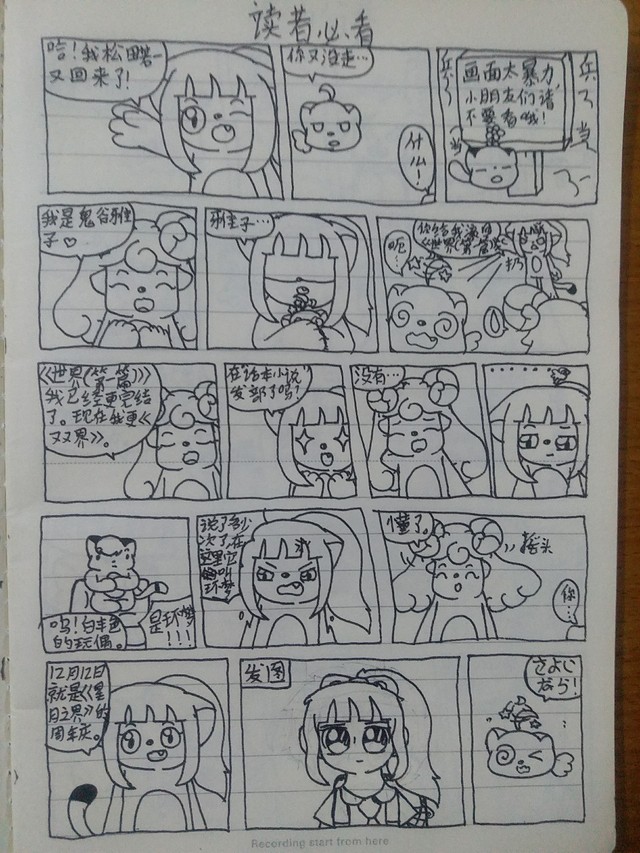 读者必看
哈！我松田碧一
又回来了！
你又没走…
什么！
乒
乓
当
当
画面太暴力，
小朋友们请
不要看哦！
我是鬼谷雅
子♡
雅子…
呃…
扔
《世界(第一
篇)》
我已经更完结
了。现在我更《
双界》。
在话本小说
发部了吗？
没有…
……
呜！白羊色
的玩偶。
是环梦
!!!
说了多少
次了在
这里它
叫
环梦
懂了。
摇头
你…
12月12日
就是《星
月之界》的
周年庆。
发图
さよう
なら！
Recording start from here